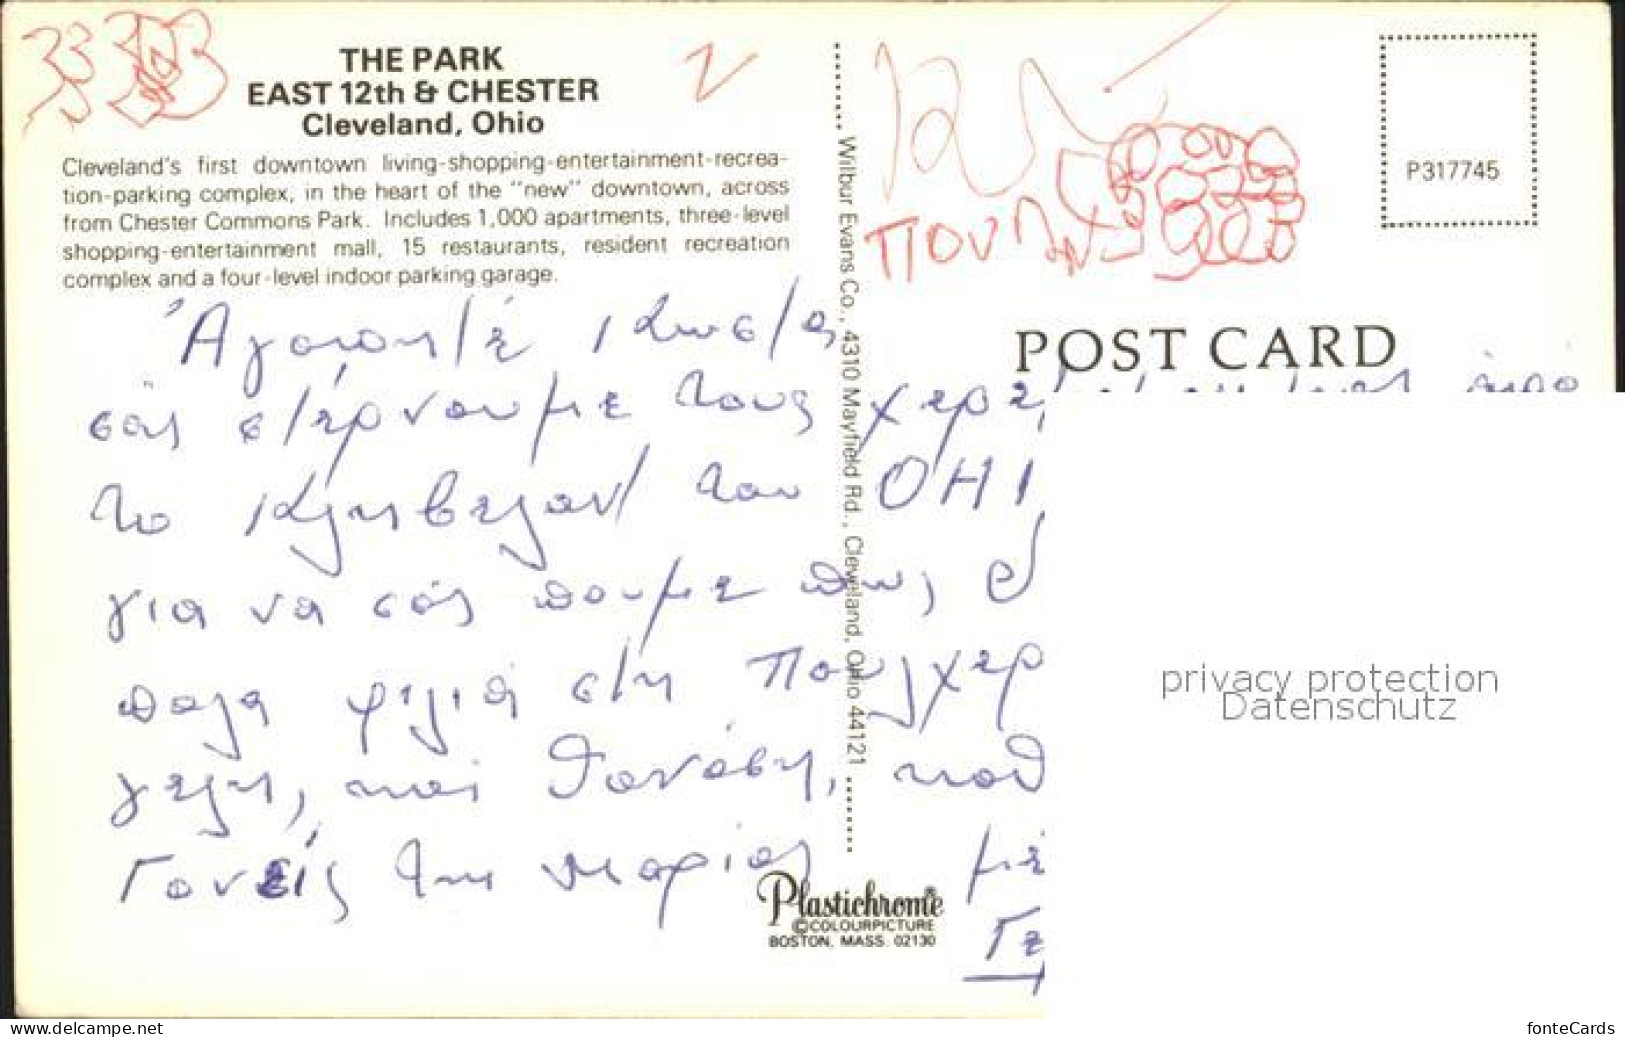 THE PARK
EAST 12th & CHESTER
Cleveland, Ohio
Cleveland's first downtown living-shopping-entertainment-recrea-
tion-parking complex, in the heart of the "new" downtown, across
from Chester Commons Park. Includes 1,000 apartments, three-level
shopping-entertainment mall, 15 restaurants, resident recreation
complex and a four-level indoor parking garage.
Wilbur Evans Co., 4310 Mayfield Rd., Cleveland, Ohio 44121
P317745
POST CARD
Κώστα
σάς στέρνουμε τους χερε ἀπό
το Κλήβελαντ του ΟΗΙ
για να σάς πούμε πως
πολα φιλιά στη Πουλχερ
γελη, και Θανάση, και
Γονείς της Μαρίας με
Plastichrome®
©COLOURPICTURE
BOSTON, MASS. 02130
privacy protection
Datenschutz
www.delcampe.net
fonteCards